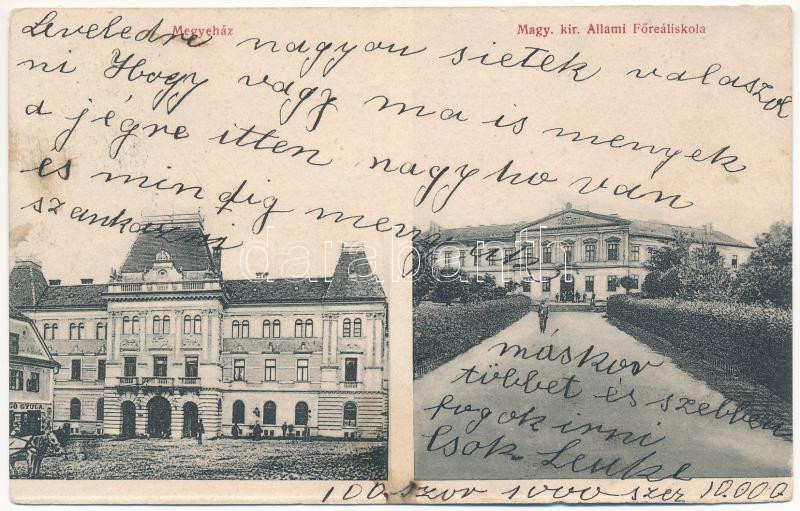 Megyeház
Magy. kir. Állami Főreáliskola
Leveledre nagyon sietek valaszol
ni Hogy vagy ma is menyek
a jégre itten nagy ho van
es mindig menyek
szankazni
máskor
többet és szebben
fogok irni
Csok Lenke
100 szor 1000 szer 10.000
GÓ GYULA
darabanth